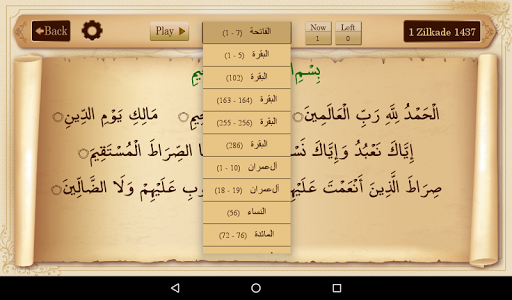 Back
Play
Now Left
1 0
1 Zilkade 1437
بِسْمِ
الْحَمْدُ لِلَّهِ رَبِّ الْعَالَمِينَ مَالِكِ يَوْمِ الدِّينِ
إِيَّاكَ نَعْبُدُ وَإِيَّاكَ الصِّرَاطَ الْمُسْتَقِيمَ
صِرَاطَ الَّذِينَ أَنْعَمْتَ عَلَيْهِمْ وَلَا الضَّالِّينَ
الفاتحة (1 - 7)
البقرة (1 - 5)
البقرة (102)
البقرة (163 - 164)
البقرة (255 - 256)
البقرة (286)
آل عمران (1 - 10)
آل عمران (18 - 19)
النساء (56)
المائدة (72 - 76)